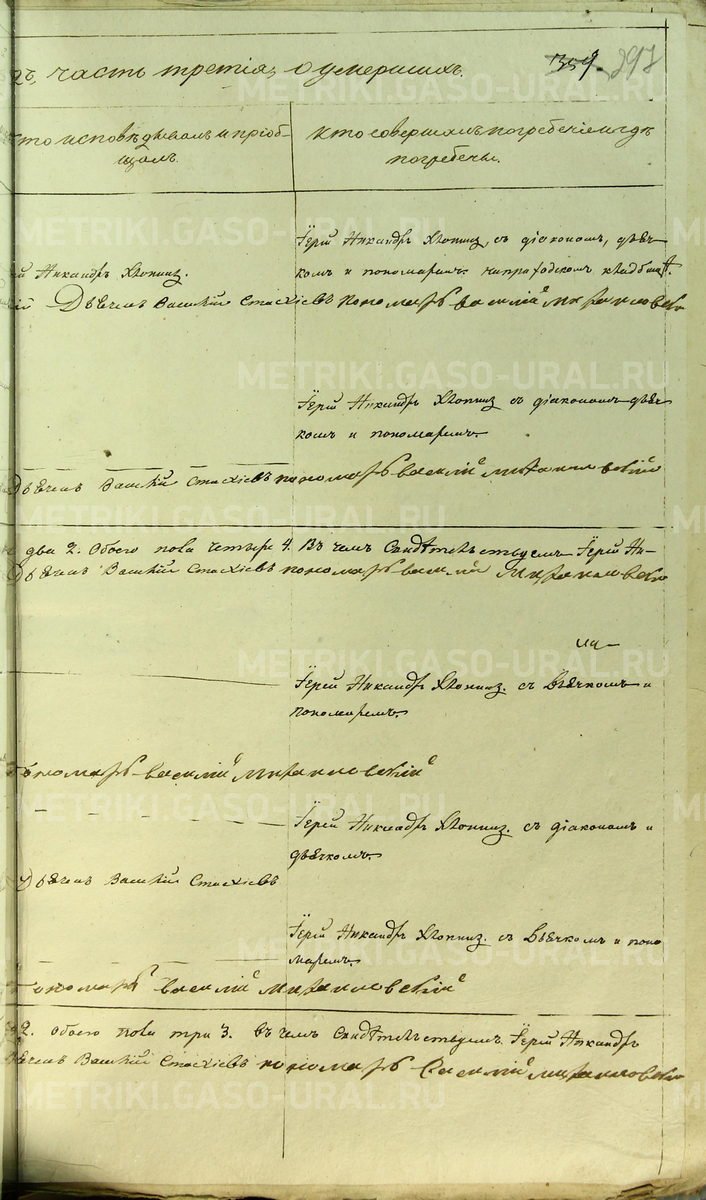 часть третія, о умершихъ. 359. 297
то исповѣдывалъ и пріоб-
щалъ.
кто совершалъ погребеніе и гдѣ
погребены.
Іерей Никандръ Хлопинъ, съ діакономъ, дьяч-
комъ и пономаремъ. на приходскомъ кладбищѣ.
ей Никандръ Хлопинъ.
Дьячекъ Василій Стахіевъ пономарь василій михайловскій
Іерей Никандръ Хлопинъ съ діакономъ дьяч-
комъ и пономаремъ.
Дьячекъ Василій Стахіевъ пономарь василій михайловскій
два 2. Обоего пола четыре 4. Въ чемъ Свидѣтельствуемъ Іерей Ни-
Дьячекъ Василій Стахіевъ пономарь василій михайловскій
Іерей Никандръ Хлопинъ. съ Дьячкомъ и
пономаремъ.
Пономарь василій михайловскій
Іерей Никандръ Хлопинъ. съ діакономъ и
дьячкомъ.
Дьячекъ Василій Стахіевъ
Іерей Никандръ Хлопинъ. съ Дьячкомъ и поно
маремъ.
Пономарь василій михайловскій
2. обоего пола три 3. въ чемъ Свидѣтельствуемъ. Іерей Никандръ
Дьячекъ Василій Стахіевъ пономарь Василій михайловскій
METRIKI.GASO-URAL.RU